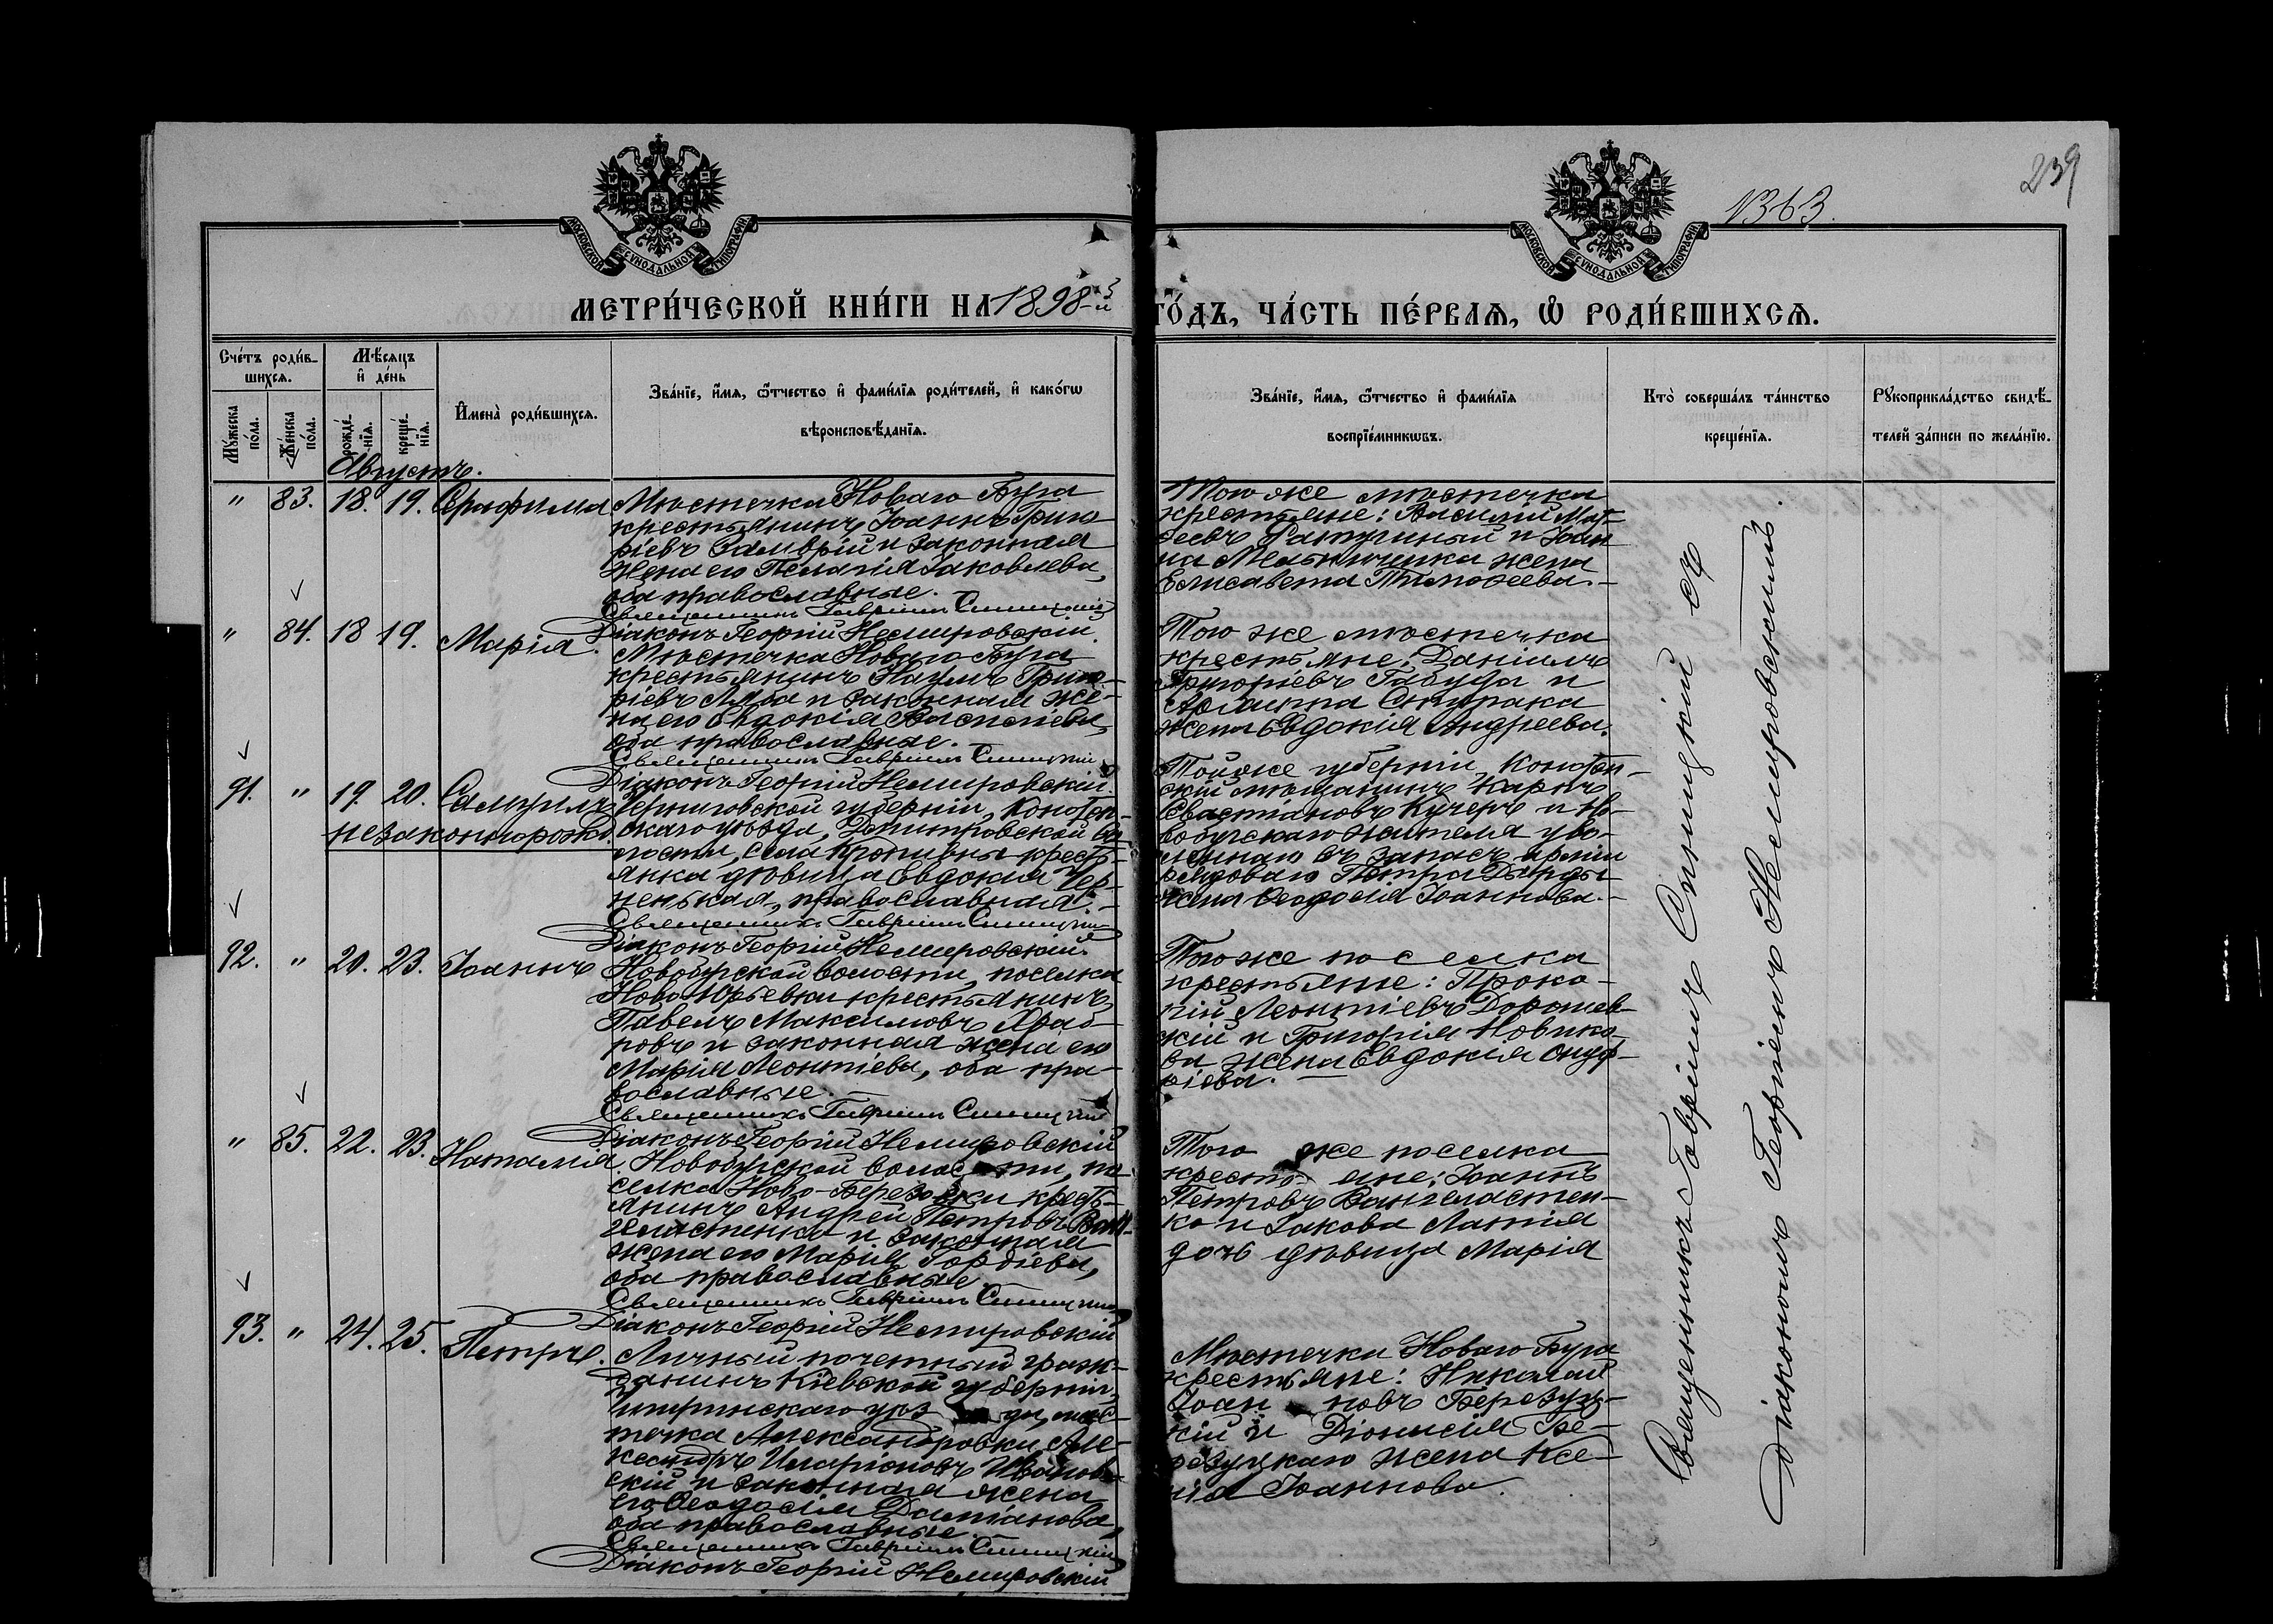 239
1363.
МОСКОВСКОЙ СУНОДАЛЬНОЙ ТИПОГРАФІИ
МОСКОВСКОЙ СУНОДАЛЬНОЙ ТИПОГРАФІИ
МЕТРИ́ЧЕСКОЙ КНИ́ГИ НА 1898-й
ГО́ДЪ, ЧА́СТЬ ПЕ́РВАѦ, Ѡ РОДИ́ВШИХСѦ.
Сче́тъ роди́в-
шихсѧ.
Мѣ́сѧцъ
и҆ де́нь
Мꙋ́жеска по́ла.
Же́нска по́ла.
рожде́-нїѧ.
креще́-нїѧ.
И҆мена̀ роди́вшихсѧ.
Зва́нїе, и҆́мѧ, ѻ҆́тчество и҆ фами́лїѧ роди́телей, и҆ како́гѡ
вѣроисповѣ́данїѧ.
Зва́нїе, и҆́мѧ, ѻ҆́тчество и҆ фами́лїѧ
воспрїе́мникѡвъ.
Кто̀ соверша́лъ та́инство
креще́нїѧ.
Рꙋкоприкла́дство свидѣ́-
телей за́писи по жела́нїю.
Августъ.
" 83. 18. 19. Серафима
Мѣстечка Новаго Буга
крестьянинъ Іоаннъ Григо-
ріевъ и законная
жена его Пелагія Іаковлева,
оба православные.
Священникъ Гавріилъ Синицкій
Діаконъ Георгій Немировскій.
Того же мѣстечка
крестьяне: Василій Мат-
ѳеевъ и Іоан-
на жена
Елисавета Тимоѳеева.-
" 84. 18 19. Марія.
Мѣстечка Новаго Буга
крестьянинъ Наумъ Григо-
ріевъ и законная же-
на его Евдокія Васильева,
оба православные.-
Священникъ Гавріилъ Синицкій
Діаконъ Георгій Немировскій.
Того же мѣстечка
крестьяне: Даніилъ
Григорьевъ Габуда и
Скурака
жена Евдокія Андреева.
91. " 19. 20. Самуилъ
незаконнорожд.
Черниговской губерніи, Коното-
скаго уѣзда, Дмитровской во-
лости, села Кропивны кресть-
янка дѣвица Евдокія Чер-
ненькая, православная.-
Священникъ Гавріилъ Синицкій
Діаконъ Георгій Немировскій.
Той же губерніи, Конотоп-
скій мѣщанинъ Карпъ
Севастіановъ Кучеръ и Но-
вобугскаго жителя уво-
леннаго въ запасъ арміи
рядоваго Петра Дырды
жена Ѳеодосія Іоаннова.-
92. " 20. 23. Іоаннъ
Новобугской волости, поселка
Ново-Юрьевки крестьянинъ
Павелъ Максимовъ Храб-
ровъ и законная жена его
Марія Леонтіева, оба пра-
вославные.-
Священникъ Гавріилъ Синицкій
Діаконъ Георгій Немировскій
Того же поселка
крестьяне: Проко-
пій Леонтіевъ Дорошев-
скій и Григорія Новико-
ва жена Евдокія Онуф-
ріева.-
" 85. 22. 23. Наталія.
Новобугской волости, по-
селка Ново-Березовки кресть-
янинъ Андрей Петровъ Ван-
желистенко и законная
жена его Марія Гордіева,
оба православные.
Священникъ Гавріилъ Синицкій
Діаконъ Георгій Немировскій
Того же поселка
крестьяне: Іоаннъ
Петровъ Ванжелистен-
ко и Іакова
дочь дѣвица Марія
93. " 24. 25. Петръ.
Личный почетный граж-
данинъ Кіевской губерніи,
Чигиринскаго уѣзда, мѣс-
течка Александровки, Але-
ксандръ Иларіоновъ Иванов-
скій и законная жена
его Ѳеодосія Даміанова,
оба православные.
Священникъ Гавріилъ Синицкій
Діаконъ Георгій Немировскій
Мѣстечка Новаго Буга
крестьяне: Николай
Іоанновъ Березуц-
кій и Діонисія Бе-
резуцкаго жена Ксе-
нія Іоаннова.
Священникъ Гавріилъ Синицкій съ
Діакономъ Георгіемъ Немировскимъ.